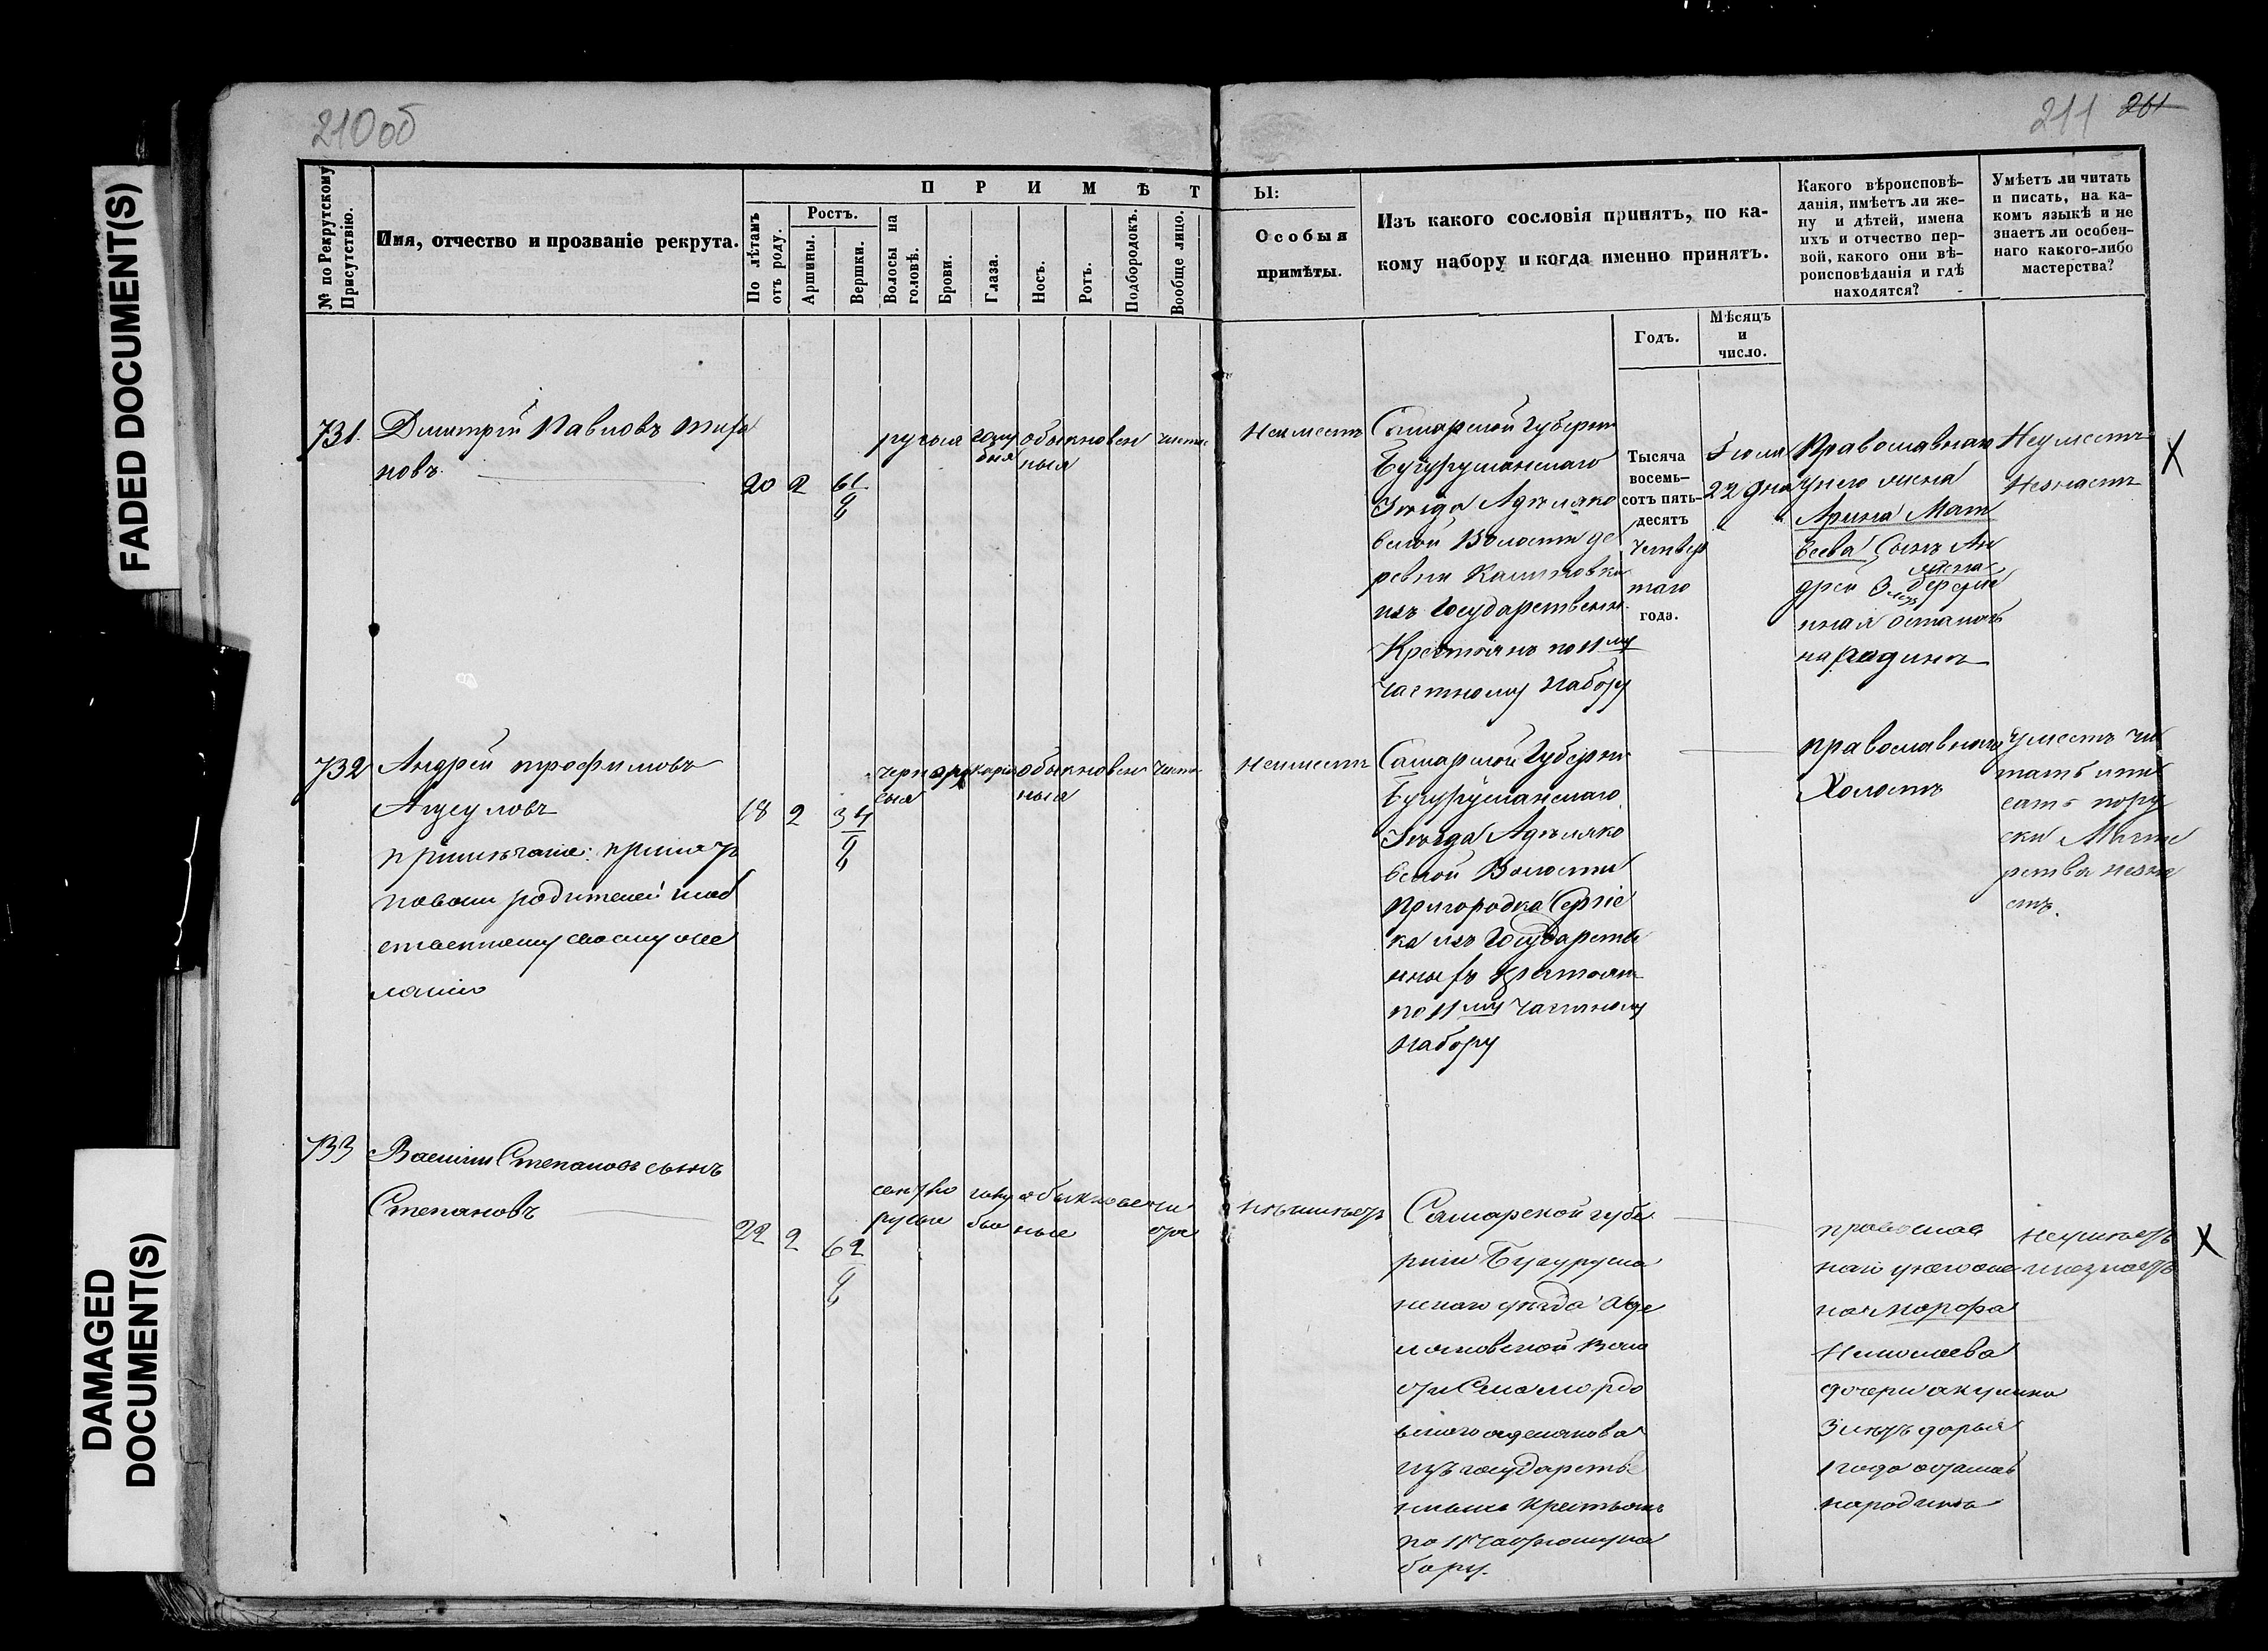 210об
211 261
FADED DOCUMENT(S)
DAMAGED
DOCUMENT(S)
№ по Рекрутскому
Присутствію.
Имя, отчество и прозваніе рекрута.
ПРИМѢТ
По лѣтамъ
отъ роду.
Ростъ.
Аршины.
Вершки.
Волосы на
головѣ.
Брови.
Глаза.
Носъ.
Ротъ.
Подбородокъ.
Вообще лицо.
Ы:
Особыя
примѣты.
Изъ какого сословія принятъ, по ка-
кому набору и когда именно принятъ.
Годъ.
Мѣсяцъ
и
число.
Какого вѣроисповѣ-
данія, имѣетъ ли же-
ну и дѣтей, имена
ихъ и отчество пер-
вой, какого они вѣ-
роисповѣданія и гдѣ
находятся?
Умѣетъ ли читать
и писать, на ка-
комъ языкѣ и не
знаетъ ли особен-
наго какого-либо
мастерства?
731.
Дмитрій Павловъ
новъ
20 2 6 1/8
русыя голу
быя
обыкновен
ныя
чистое
Неимеетъ
Самарской Губерни
Бугурусланскаго
Уѣзда Аделяко
вской Волости де
ревни Калиновки
изъ Государственн.
Крестьянъ по 11му
частному Набору
Тысяча
восемь-
сотъ пять-
десять
четвер
таго
года.
Іюля
22 дня
Православнаго
у него жена
Арина Мат
веева Сынъ Ан
дрей 3 лет жена
береме
нная остались
на родине
Неумеетъ
Незнаетъ
X
732
Андрей трофимовъ
примѣчаніе: принятъ
по воли родителей и соб
ственному своему же
ланію
18 2 3 4/8
черно
сыя
карія
обыкновен
ныя
чистое
Неимеетъ
Самарской Губерни
Бугурусланскаго
Уѣзда Аделяко
вской Волости
пригородка Сергіе
ка изъ Государстве
нныхъ крестьян
по 11му частному
Набору
православнаго
Холостъ
умеетъ чи
тать и пи
сать пору
ски Масте
рства незна
етъ.
733
Василій Степановъ сынъ
Степановъ
22 2 6 2/8
светло
русые
голу
бые
обыкновен
ные
чи
стое
неимѣетъ
Самарской губе
рніи Бугурусла
нскаго уѣзда Аде
ляковской Воло
сти Села мордо
вскаго аделякова
изъ государстве
нныхъ крестьянъ
по 11 частному на
бору.
православ
наго у него же
на марфа
Николаева
дочери акулина
3 лѣтъ дарья
1 года остались
народинѣ
неумѣетъ
инезнаетъ
X